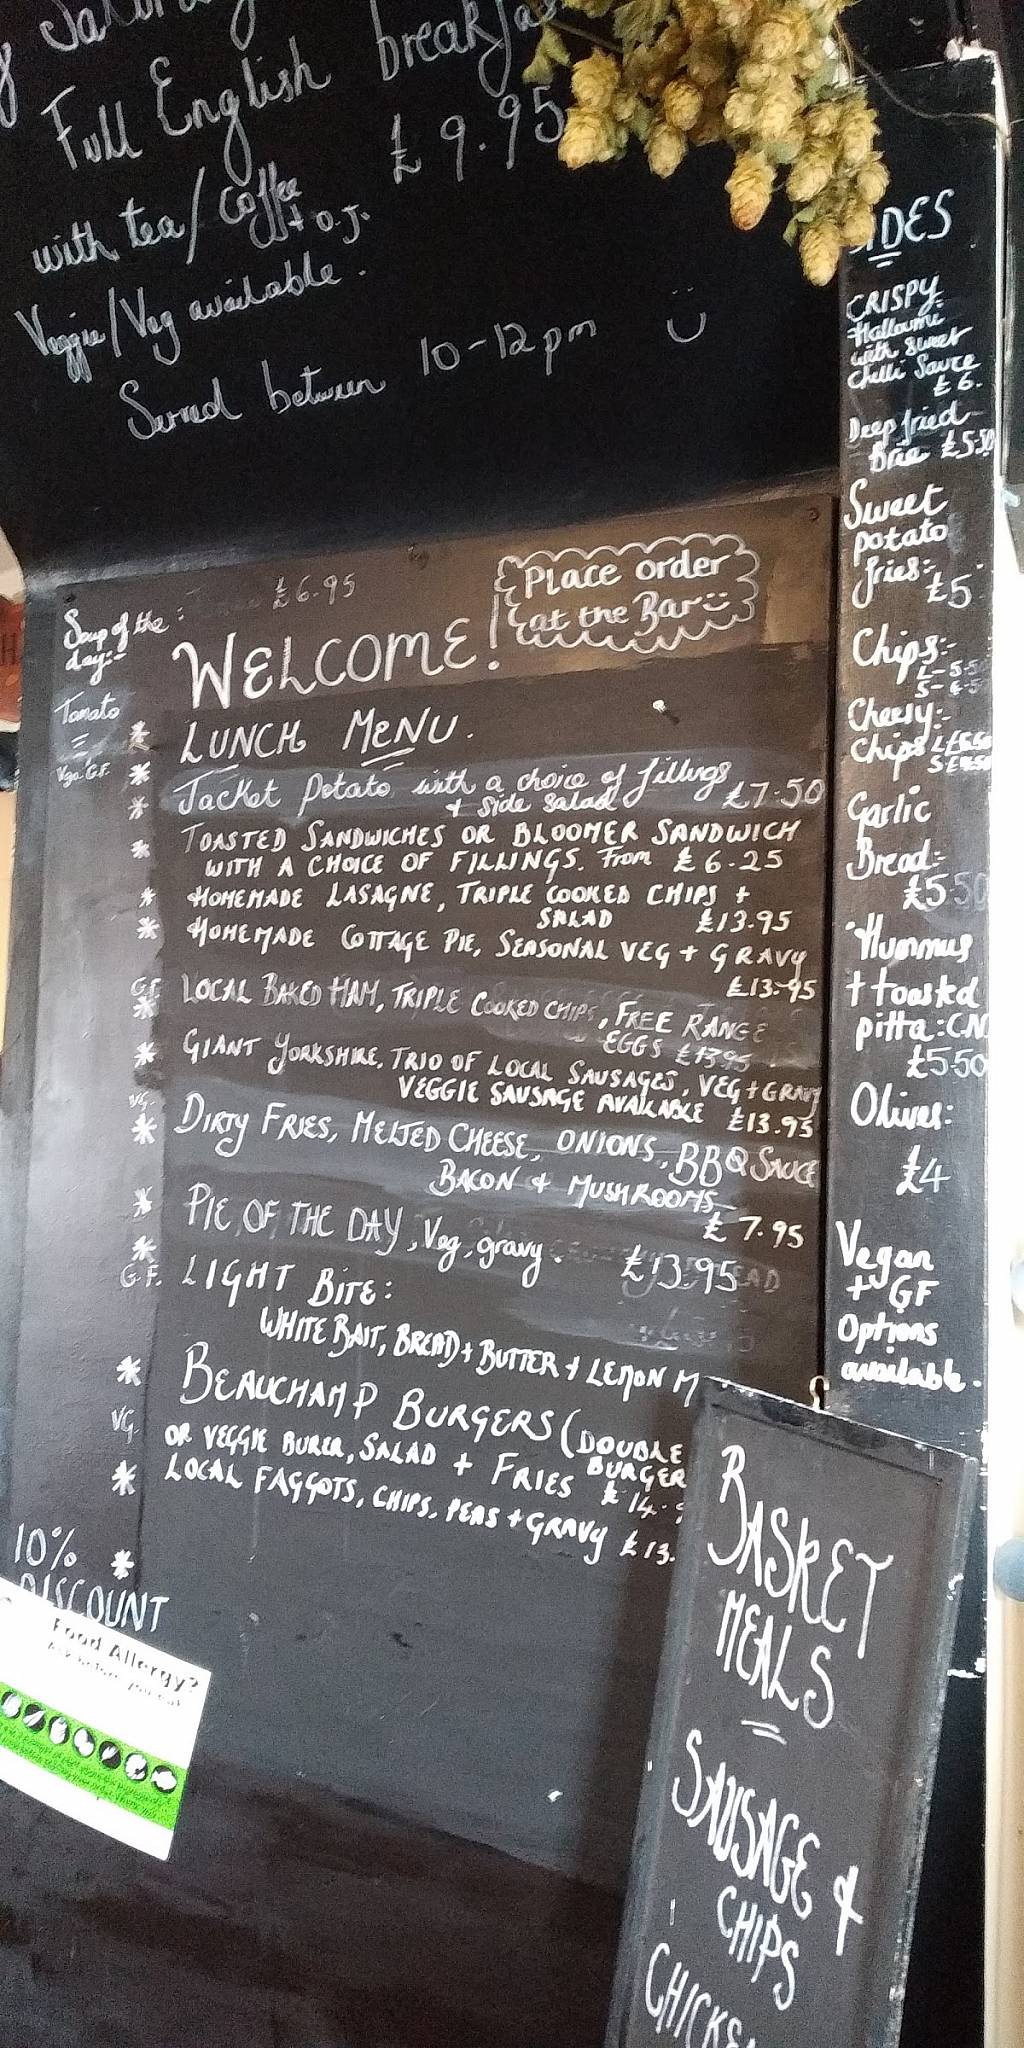 Full English breakfas
£9.95
with tea/coffee
+ O.J.
Veggie/Veg available.
Served between 10-12pm
SIDES
CRISPY
Halloumi
with sweet
Chilli Sauce
£6.
Deep fried
Brie £5.50
Sweet
potato
fries:-
£5
Chips:-
L-5.50
Cheesy:-
Chips
Garlic
Bread:-
£5.50
Hummus
+ toasted
pitta: (N
£5.50
Olives:
£4
Vegan
+ GF
Options
available.
Soup of the :
day:-
£6.95
Tomato
Place order
at the Bar
WELCOME!
LUNCH MENU.
Jacket Potato with a choice of fillings
+ side salad £7.50
TOASTED SANDWICHES OR BLOOMER SANDWICH
WITH A CHOICE OF FILLINGS. From £6.25
HOMEMADE LASAGNE, TRIPLE COOKED CHIPS +
SALAD £13.95
HOMEMADE COTTAGE PIE, SEASONAL VEG + GRAVY
£13.95
GF LOCAL BAKED HAM, TRIPLE COOKED CHIPS, FREE RANGE
EGGS £13.95
GIANT YORKSHIRE, TRIO OF LOCAL SAUSAGES, VEG + GRAVY
VG. VEGGIE SAUSAGE AVAILABLE £13.95
DIRTY FRIES, MELTED CHEESE, ONIONS, BBQ SAUCE
BACON & MUSHROOMS
£7.95
PIE OF THE DAY, Veg, gravy. £13.95
G.F. LIGHT BITE:
WHITE BAIT, BREAD + BUTTER + LEMON M
BEAUCHAMP BURGERS (DOUBLE
BURGER
VG. OR VEGGIE BURER, SALAD + FRIES £14.
LOCAL FAGGOTS, CHIPS, PEAS + GRAVY £13.
10%
DISCOUNT
Food Allergy?
Ask before you eat
BASKET
MEALS
SAUSAGE &
CHIPS
CHICKE